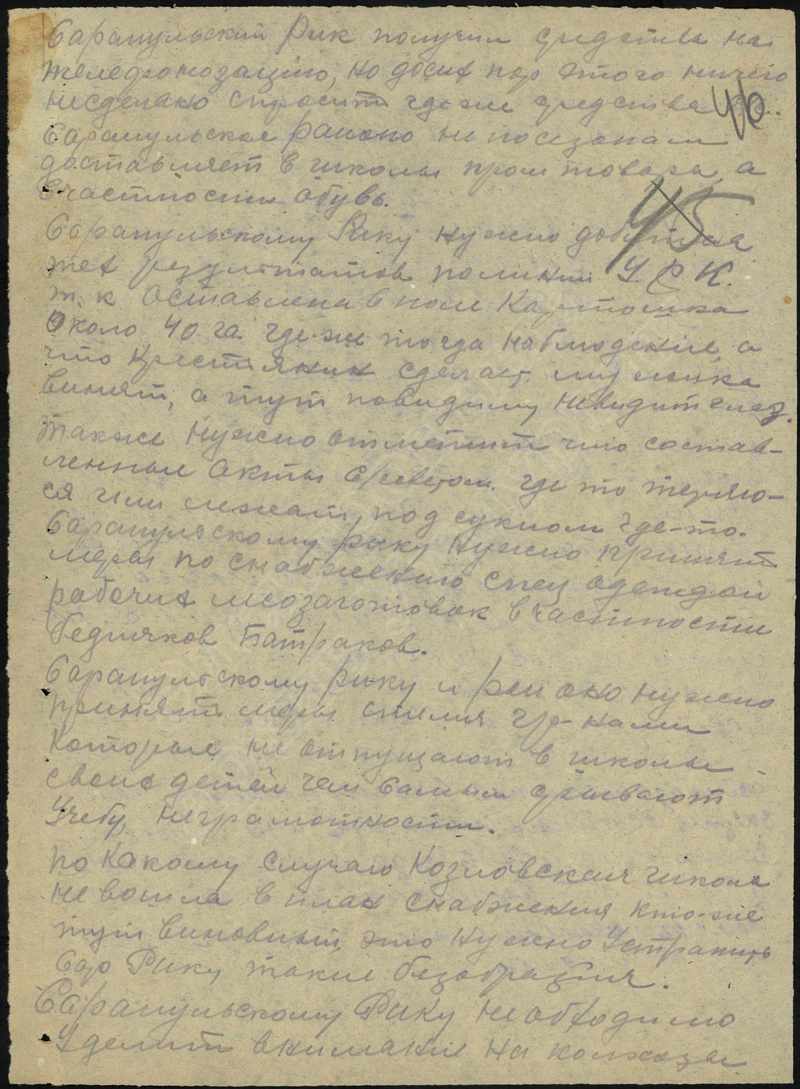 Сарапульский Рик получил средства на
желефонизацию, но досих пор этого ничего
несделано спросить где эти средства
46.
Сарапульское районо не посезонам
доставляет в школы пром товара, а
вчастности обувь.
45
Сарапульскому Рику нужно добиться
тех результатов полинии У.Р.К.
т.к оставлена в поле Картошка
Около 40 га. где-же тогда наблюдение, а
что Крестянин сделает ему
винят, а тут повидиму невидит глаз.
также нужно отметить что состав-
ленные Акты С/советом где то теряю-
ся или лежат, под сукном где-то.
Сарапульскому рику нужно принять
меры по снабжению спец одеждой
рабочих лесозаготовок вчастности
бедняков Батраков.
Сарапульскому рику и рай оно нужно
принять меры стеми гр-нами
Которые не отпущают в школы
своих детей чем самым срывают
Учебу неграмотности.
по какому случаю Козловская школа
не вошла в план снабжения кто-же
тут виновный, это нужно Устранить
Сар Рику такие безобразия.
Сарапульскому Рику необходимо
Уделить внимание на колхозы